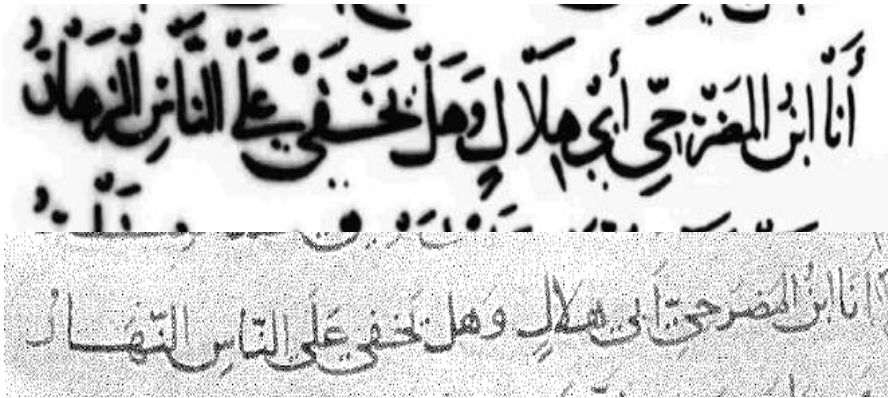 أَنَا ابْنُ المَضْرَحِيِّ أَبِي هِلَالٍ وَهَلْ يَخْفَى عَلَى النَّاسِ النَّهَارُ
أَنَا ابْنُ المَضْرَحِيِّ أَبِي هِلَالٍ وَهَلْ يَخْفَى عَلَى النَّاسِ النَّهَارُ